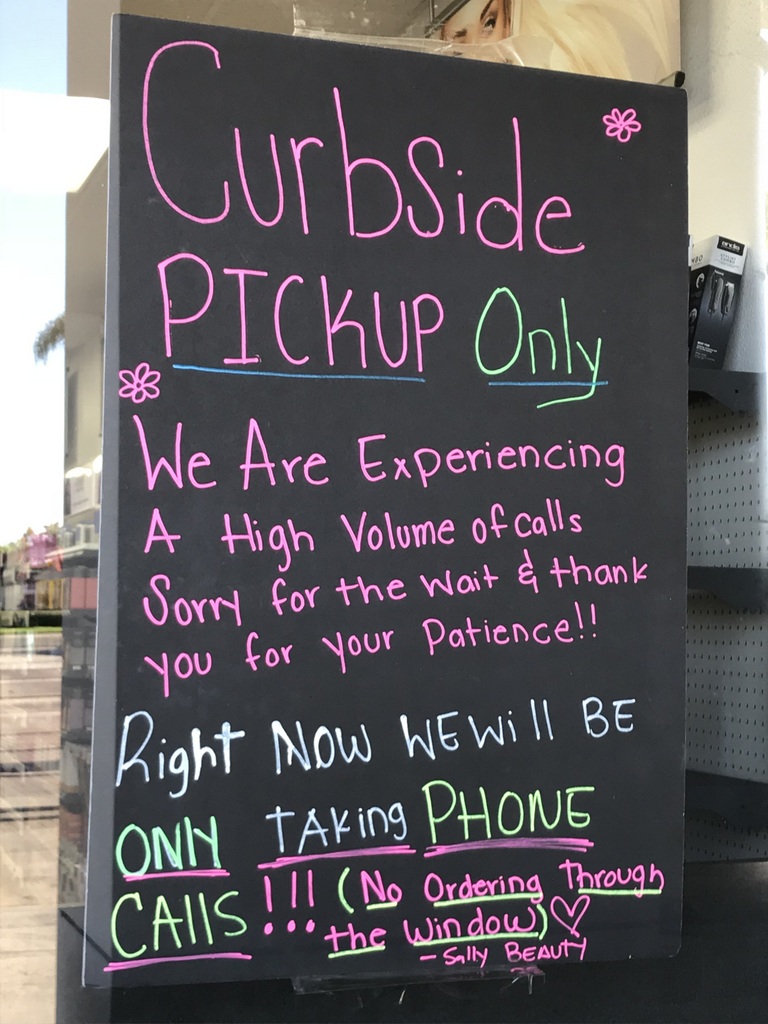 CurbSide
PICKUP Only
We Are Experiencing
A High Volume of calls
Sorry for the wait & thank
you for your Patience!!
Right NOW WE Will BE
ONly TAKing PHONE
CAllS !!! (No Ordering Through
the Window) ♡
- Sally BEAUTY
andis